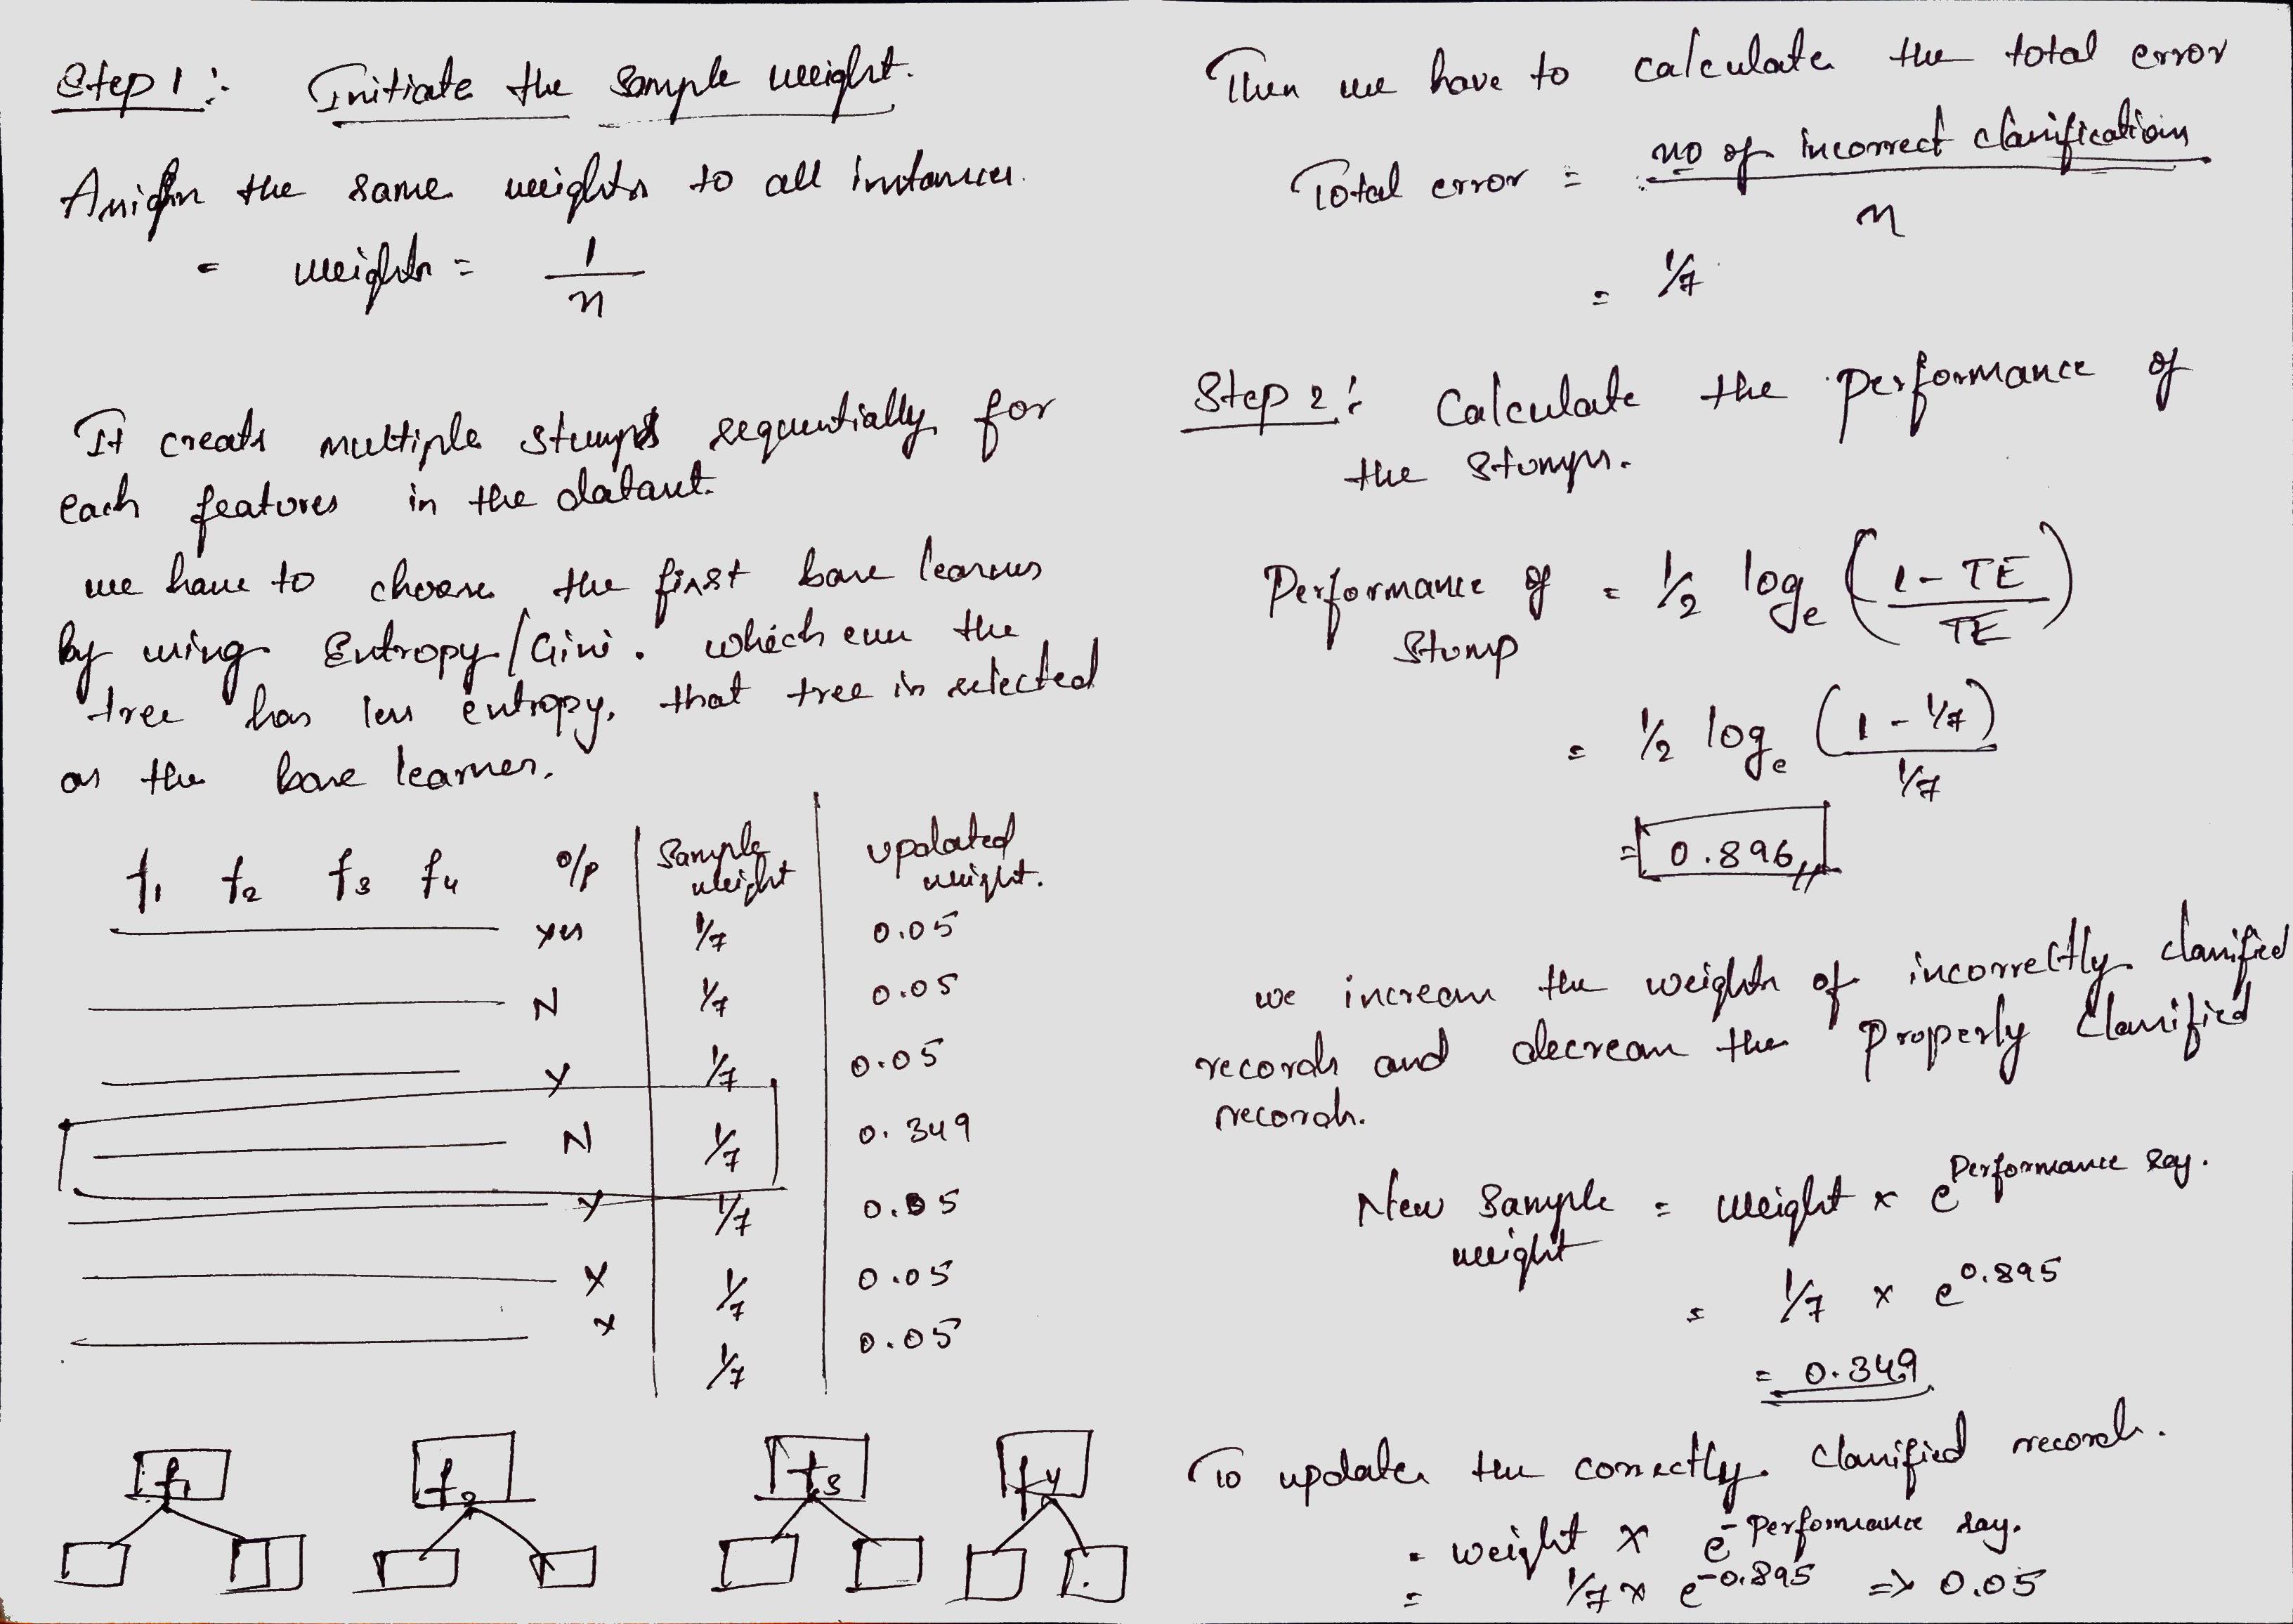 Step 1 :- Initiate the sample weight.
Assign the same weights to all instances.
= weights = 1/n
It creats multiple stumps sequentially for
each features in the dataset.
we have to choose the first base learners
by using Entropy/Gini. which ever the
tree has less entropy, that tree is selected
as the base learner.
f1 f2 f3 f4 o/p Sample weight updated weight.
yes 1/7 0.05
N 1/7 0.05
Y 1/7 0.05
N 1/7 0.349
Y 1/7 0.05
Y 1/7 0.05
Y 1/7 0.05
f1 f2 f3 f4
Then we have to calculate the total error
Total error = no of incorrect classifications / n
= 1/7
Step 2 :- Calculate the performance of
the stumps.
Performance of Stump = 1/2 loge (1 - TE / TE)
= 1/2 loge (1 - 1/7) / 1/7
= 0.896
we increase the weights of incorrectly classified
records and decrease the properly classified
records.
New Sample weight = weight x e^Performance say.
= 1/7 x e^0.895
= 0.349
To update the correctly classified records.
= weight x e^-Performance say.
= 1/7 x e^-0.895 => 0.05